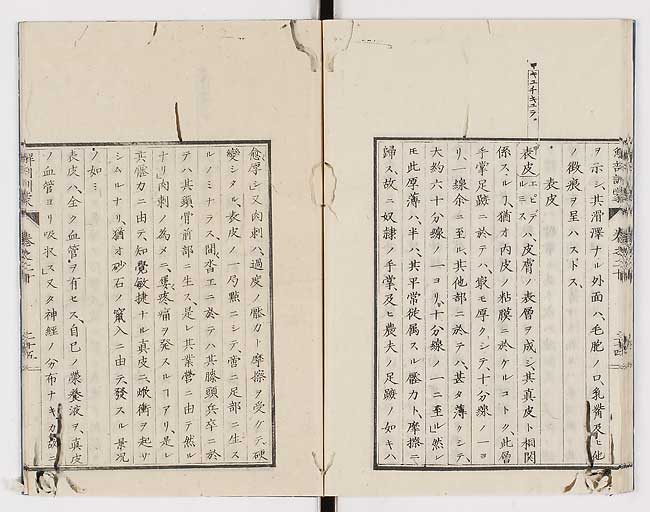 キュチキュラ。
ヲ示シ、其滑澤ナル外面ハ、毛胞ノ口、乳嘴及ヒ他
ノ微痕ヲ呈ハスドス、
表皮
表皮エピデルミスハ、皮膚ノ表層ヲ成シ、其真皮ト相関
係スルヿ、猶オ内皮ノ粘膜ニ於ケルコトク、此層
手掌足蹠ニ於テハ、最モ厚クシテ、十分線ノ一ヨ
リ、一線余ニ至ル、其他部ニ於テハ、甚タ薄クシテ、
大約六十分線ノ一ヨリ、十分線ノ一ニ至ル」然レ
モ此厚薄ハ、半ハ、其平常従属スル壓力ト、摩擦ニ
歸ス、故ニ奴隷ノ手掌、及ヒ農夫ノ足蹠ノ如キハ
愈厚シ」又肉刺ハ、過度ノ壓力ト摩擦ヲ受ケテ、硬
變シタル、表皮ノ一局點ニシテ、啻ニ足部ニ生ス
ルノミナラス、間沓工ニ於テハ其膝頭兵卒ニ於
テハ其頭骨前部ニ生ス、是レ其業營ニ由テ然ル
ナリ」肉刺ノ為メニ、屡疼痛ヲ發スルコアリ、是レ
其壓力ニ由テ、知覺敏捷ナル真皮ニ、焮衝ヲ起サ
シムルナリ、猶オ砂石ノ竄入ニ由テ、發スル景況
ノ如シ
表皮ハ、全ク血管ヲ有セス、自己ノ榮養液ヲ、真皮
ノ血管ヨリ吸收ス」又タ神経ノ分布ナキカ故ニ